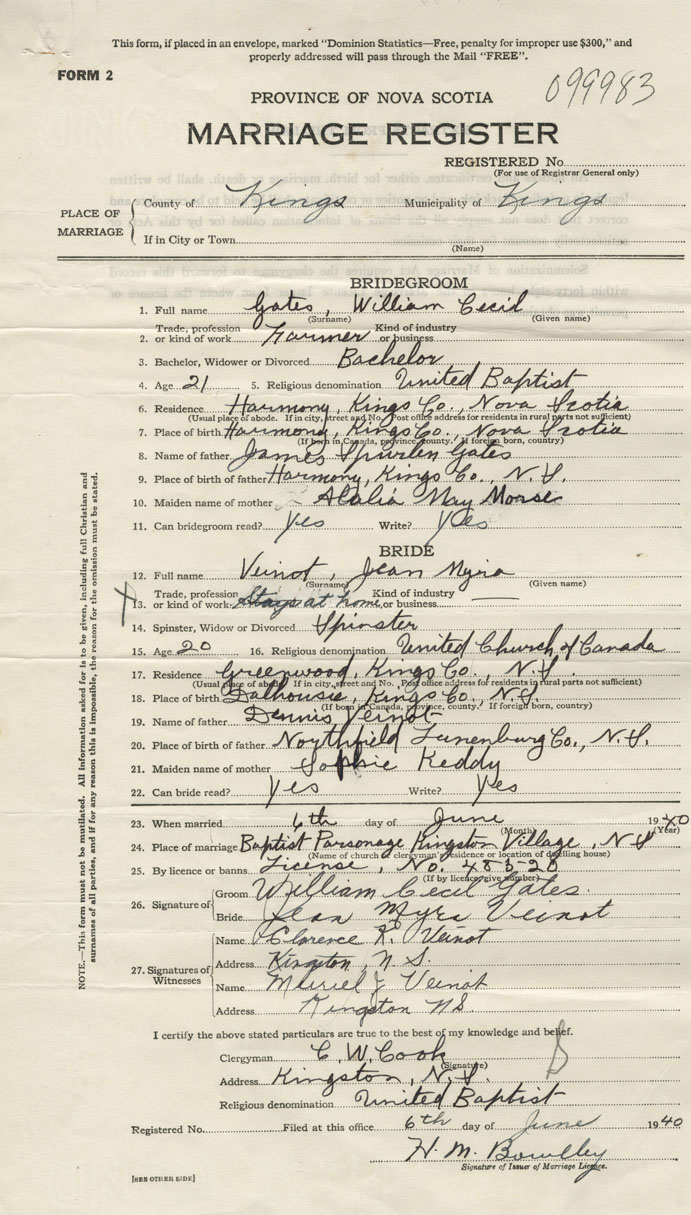 This form, if placed in an envelope, marked "Dominion Statistics—Free, penalty for improper use $300," and
properly addressed will pass through the Mail "FREE".
FORM 2
099983
PROVINCE OF NOVA SCOTIA
MARRIAGE REGISTER
REGISTERED No.
(For use of Registrar General only)
PLACE OF MARRIAGE
County of Kings Municipality of Kings
If in City or Town
(Name)
BRIDEGROOM
1. Full name Gates, William Cecil
(Surname) (Given name)
2. Trade, profession or kind of work Farmer Kind of industry or business
3. Bachelor, Widower or Divorced Bachelor
4. Age 21 5. Religious denomination United Baptist
6. Residence Harmony, Kings Co., Nova Scotia
(Usual place of abode. If in city, street and No. Post office address for residents in rural parts not sufficient)
7. Place of birth Harmony, Kings Co., Nova Scotia
(If born in Canada, province, county. If foreign born, country)
8. Name of father James Spurden Gates
9. Place of birth of father Harmony, Kings Co., N.S.
10. Maiden name of mother Atalia May Morse
11. Can bridegroom read? Yes Write? Yes
BRIDE
12. Full name Veinot, Jean Myra
(Surname) (Given name)
13. Trade, profession or kind of work Stays at home, Kind of industry or business —
14. Spinster, Widow or Divorced Spinster
15. Age 20 16. Religious denomination United Church of Canada
17. Residence Greenwood, Kings Co., N.S.
(Usual place of abode. If in city, street and No. Post office address for residents in rural parts not sufficient)
18. Place of birth Dalhousie, Kings Co., N.S.
(If born in Canada, province, county. If foreign born, country)
19. Name of father Dennis Veinot
20. Place of birth of father Northfield Lunenburg Co., N.S.
21. Maiden name of mother Sophie Keddy
22. Can bride read? Yes Write? Yes
23. When married 6th day of June 1940
(Month) (Year)
24. Place of marriage Baptist Parsonage Kingston Village, N.S
(Name of church or clergyman's residence or location of dwelling house)
25. By licence or banns License, No. 483-28
(If by licence give number)
26. Signature of
Groom William Cecil Gates.
Bride Jean Myra Veinot
27. Signatures of Witnesses
Name Clarence R. Veinot
Address Kingston, N.S.
Name Muriel J Veinot
Address Kingston NS.
I certify the above stated particulars are true to the best of my knowledge and belief.
Clergyman C. W. Cook
(Signature)
Address Kingston, N.S.
Religious denomination United Baptist
Registered No. Filed at this office 6th day of June 1940
H. M. Bowlby
Signature of Issuer of Marriage Licence.
[SEE OTHER SIDE]
NOTE.—This form must not be mutilated. All information asked for is to be given, including full Christian and
surnames of all parties, and if for any reason this is impossible, the reason for the omission must be stated.